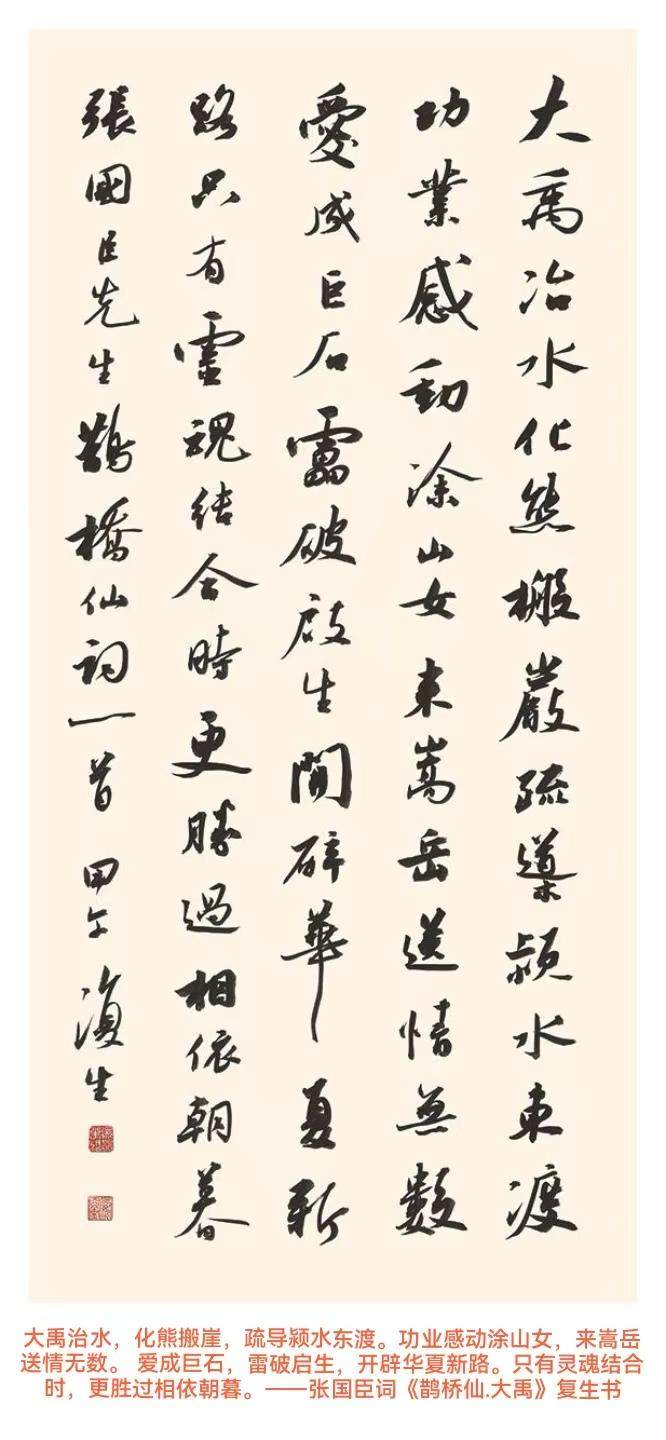 大禹治水化熊搬巖疏導潁水東渡
功業感動涂山女来嵩岳送情無數
愛成巨石靁破啟生開辟華夏新
路只有靈魂结合時更勝過相依朝暮
張國臣先生鵲橋仙詞一首 甲午 復生
大禹治水，化熊搬崖，疏导颍水东渡。功业感动涂山女，来嵩岳
送情无数。 爱成巨石，雷破启生，开辟华夏新路。只有灵魂结合
时，更胜过相依朝暮。——张国臣词《鹊桥仙.大禹》复生书